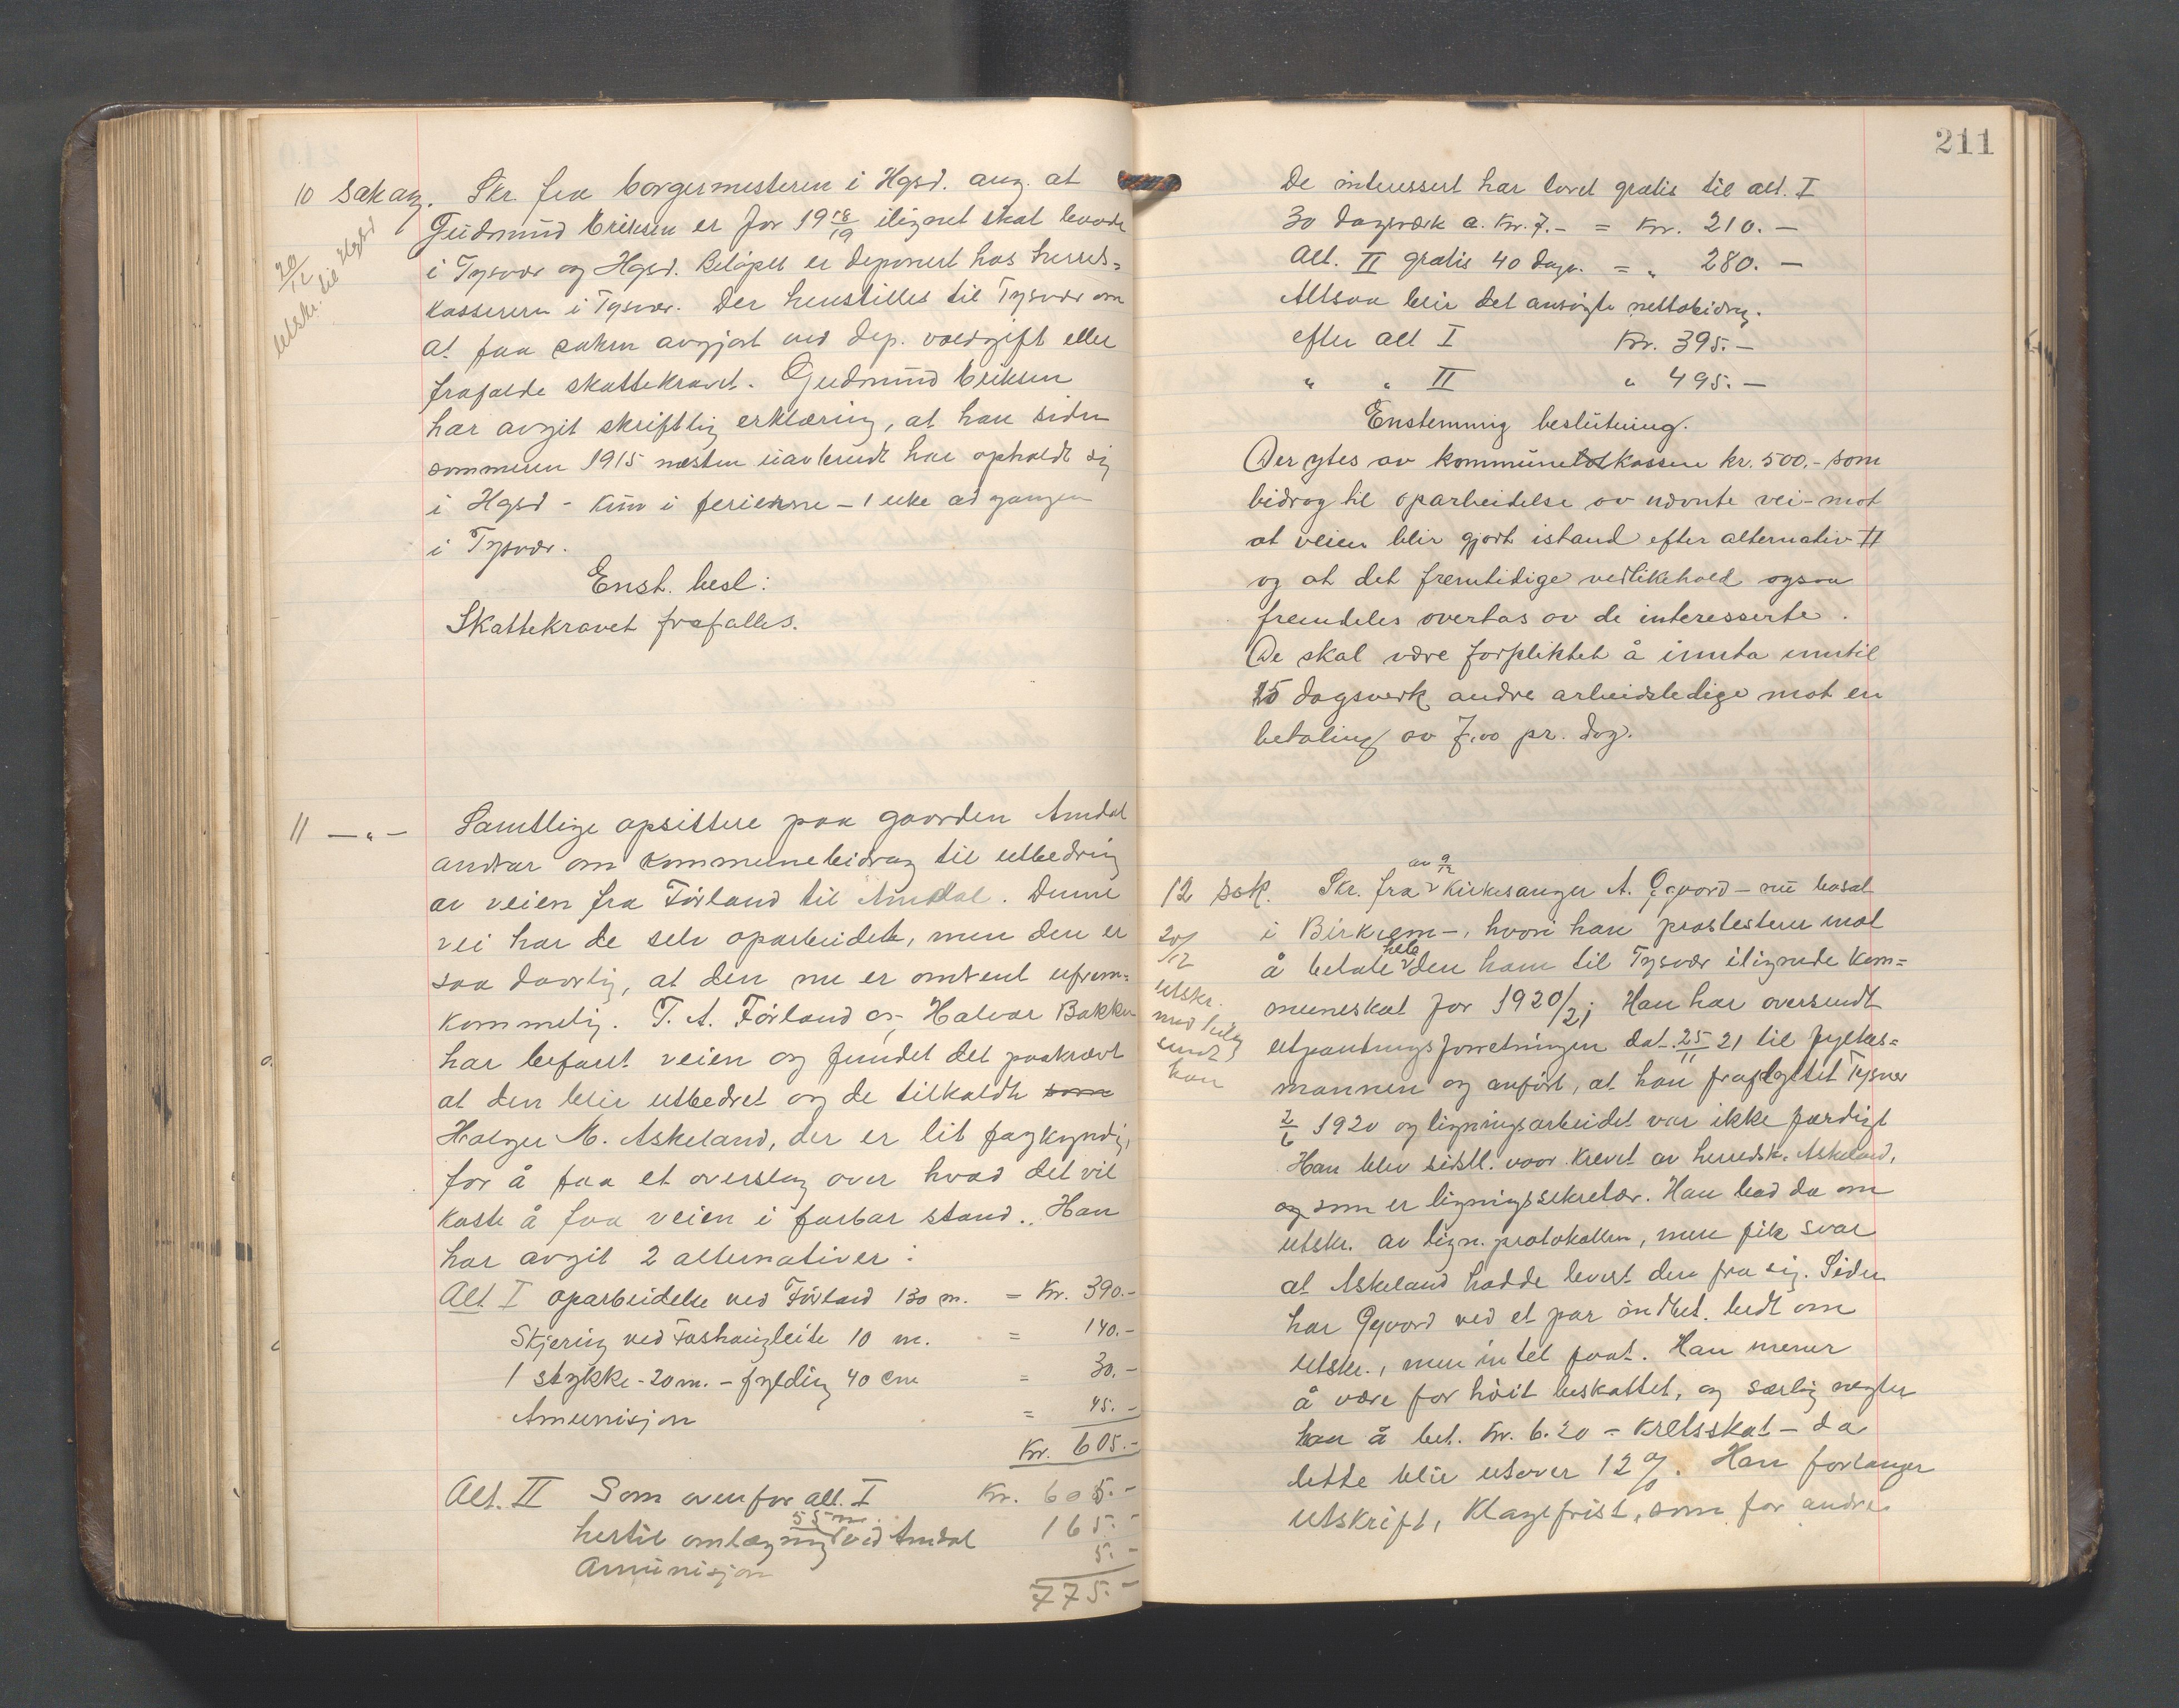 10 Sak ang. Skr. fra borgermesteren i Hgsd. ang. at
Gudmund Eriksen er for 19 18/19 ilignet skat baade
i Tysvær og Hgsd. Beløpet er deponert hos herreds-
kassereren i Tysvær. Der henstilles til Tysvær om
at faa saken avgjort ved dep. voldgift eller
frafalde skattekravet. Gudmund Eriksen
har avgit skriftlig erklæring, at han siden
sommeren 1915 næsten uavbrudt har opholdt sig
i Hgsd - kun i ferierne - 1 uke ad gangen
i Tysvær.
Enst. besl:
Skattekravet frafalles.
20/12 utskr. til Hgsd
11 — „ — Samtlige opsittere paa gaarden Amdal
andrar om kommunebidrag til utbedring
av veien fra Førland til Amdal. Denne
vei har de selv oparbeidet, men den er
saa daarlig, at den nu er omtrent ufrem-
kommelig. T. A. Førland og Halvor Bakke
har befaret veien og fundet det paakrævt
at den blir utbedret og de tilkaldte som
Holger M. Askeland, der er lit fagkyndig,
for å faa et overslag over hvad det vil
koste å faa veien i farbar stand. Han
har avgit 2 alternativer:
Alt I oparbeidelse ved Førland 130 m. = Kr. 390.-
Skjering ved 10 m. = 140.-
1 stykke - 20 m. - fylding 40 cm = 30.-
Amunisjon = 45.-
Kr. 605.-
Alt. II Som ovenfor alt. I Kr. 605.-
hertil omlægning 55 m. ved Amdal 165.-
Amunisjon 5.-
775.-
211
De interessert har lovet gratis til alt. I
30 dagsværk a. Kr. 7.- = Kr. 210.-
Alt. II gratis 40 dagv. = „ 280.-
Altsaa blir det ansøgte nettobidrag.
efter alt I Kr. 395.-
„ „ II „ 495.-
Enstemmig beslutning.
Der ytes av kommunekassen kr. 500.- som
bidrag til oparbeidelse av nævnte vei - mot
at veien blir gjort istand efter alternativ II
og at det fremtidige vedlikehold ogsaa
fremdeles overtas av de interesserte.
De skal være forpliktet å innta inntil
15 dagsverk andre arbeidsledige mot en
betaling av 7,00 pr. dag.
12 sak. Skr. fra av 9/12 Kirkesanger A. Gjvord - nu bosat
i Birkrem -, hvori han prostesterer mot
å betale hele den ham til Tysvær ilignede kom-
muneskat for 1920/21. Han har oversendt
utpantningsforretningen dat. 25/11 21 til fylkes-
mannen og anført, at han fraflyttet Tysvær
2/6 1920 og ligningsarbeidet var ikke færdigt
Han blev sidstl. vaar krevet av herredsk. Askeland,
og som er ligningssekretær. Han bad da om
utskr. av lign. protokollen, men fik svar
at Askeland hadde levert den fra sig. Siden
har Gjvord ved et par bedt om
utskr., men intet faat. Han mener
å være for høit beskattet, og særlig negter
han å bet. Kr. 6.20 - kretsskat - da
dette blir utover 12 %. Han forlanger
utskrift, klagefrist, som for andre
20/12
utskr.
med bilag
sendt